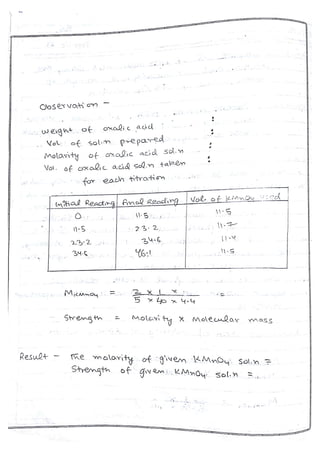 Observation -
weight of oxalic acid :
Vol. of soln prepared :
Molarity of oxalic acid sol.n :
Vol. of oxalic acid sol.n taken :
for each titration
Initial Reading Final Reading Vol. of KMnO4 used
0 11.5 11.5
11.5 23.2 11.7
23.2 34.6 11.4
34.6 46.1 11.5
MKMnO4 = 2 × 1 × =
5 × 40 × 4.4
Strength = Molarity × Molecular mass
Result - The molarity of given KMnO4 sol.n =
Strength of given KMnO4 sol.n =